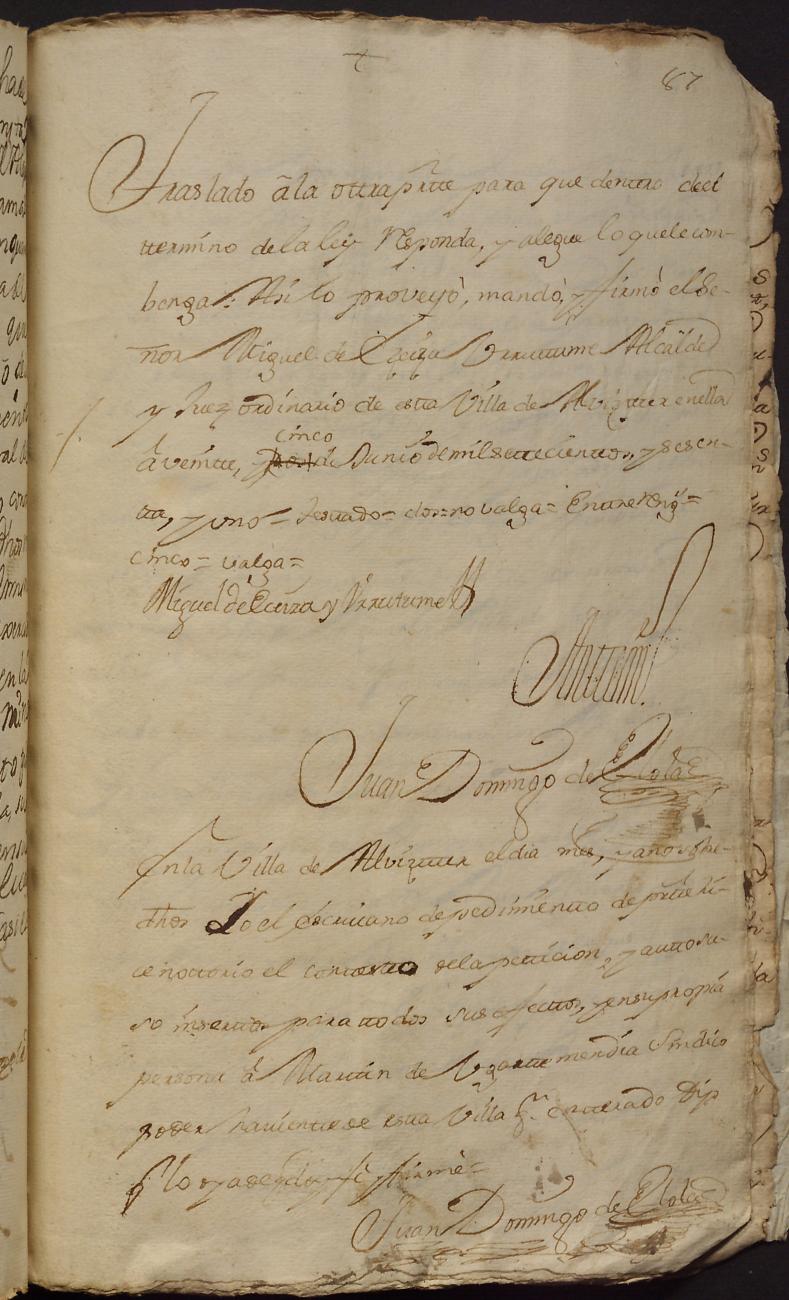 87
Traslado â la ottra prtte para que denttro de el
ttermino de la ley responda, y alegue lo que le con-
benga: Asi lo proveyò, mandò, y firmò el Se-
ñor Miguel de Eceiza Vrruttume Alcalde
y Juez ordinario de estta Villa de Alviztur en ella
cinco
â veintte, y dos de Junio de mil settecienttos, y sesen-
tta, y uno = testado = dos = no valga = Enttrereng.
cinco = valga =
Miguel de Eceiza y Vrrutume
Antemi
Juan Domingo de Elola
En la Villa de Alviztur el dia mes, y año sobre-
dhos Yo el Escrivano de pedimientto de prtte hi-
ce nottorio el contexto de la petticion, yautto su-
so inserttos para ttodos sus efecttos, y en su propia
persona â Martin de Vgarttemendia Sindico
poder havientte de estta Villa qn. entterado Dijo
lo oya de ello doy fe y firmè =
Juan Domingo de Elola